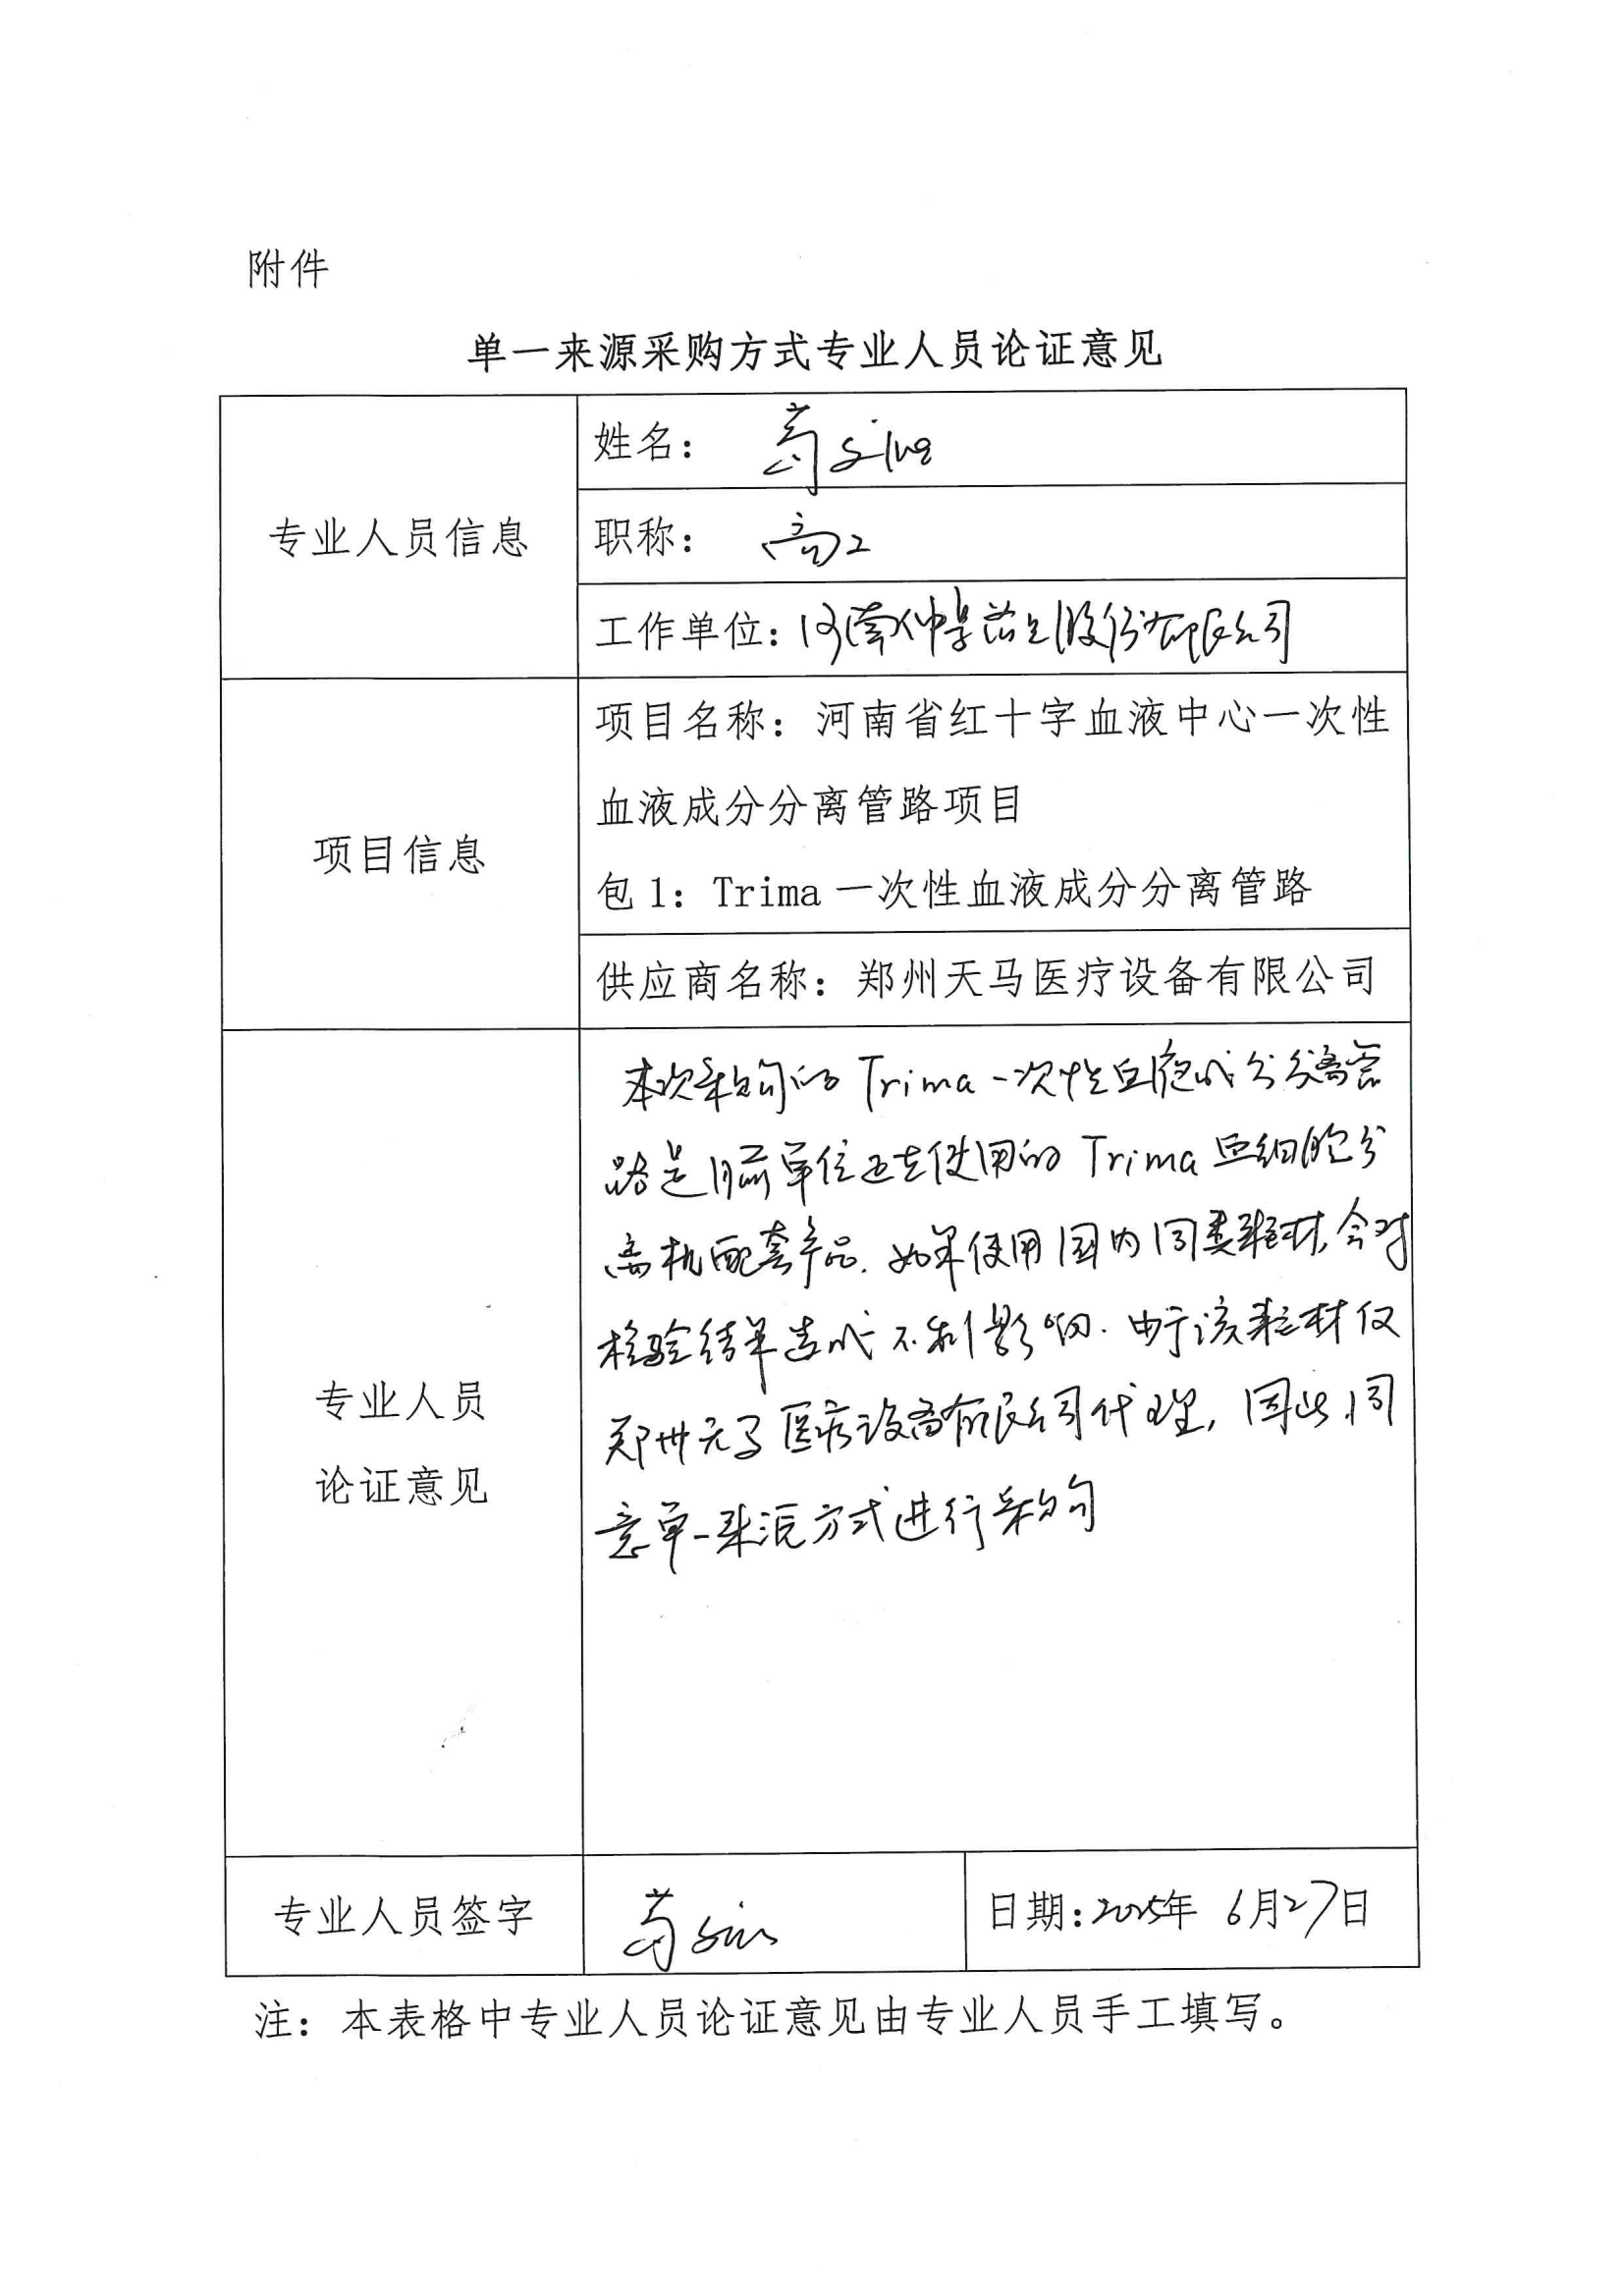 附件
单一来源采购方式专业人员论证意见
专业人员信息
姓名：
职称：高工
工作单位：河南仲景药业股份有限公司
项目信息
项目名称：河南省红十字血液中心一次性
血液成分分离管路项目
包1：Trima一次性血液成分分离管路
供应商名称：郑州天马医疗设备有限公司
专业人员
论证意见
本次采购的Trima一次性血液成分分离管
路是目前单位正在使用的Trima血细胞分
离机配套产品.如果使用国内同类耗材,会对
检验结果造成不利影响.由于该耗材仅
郑州天马医疗设备有限公司代理,因此,同
意单一来源方式进行采购
专业人员签字
日期：2025年 6月27日
注：本表格中专业人员论证意见由专业人员手工填写。